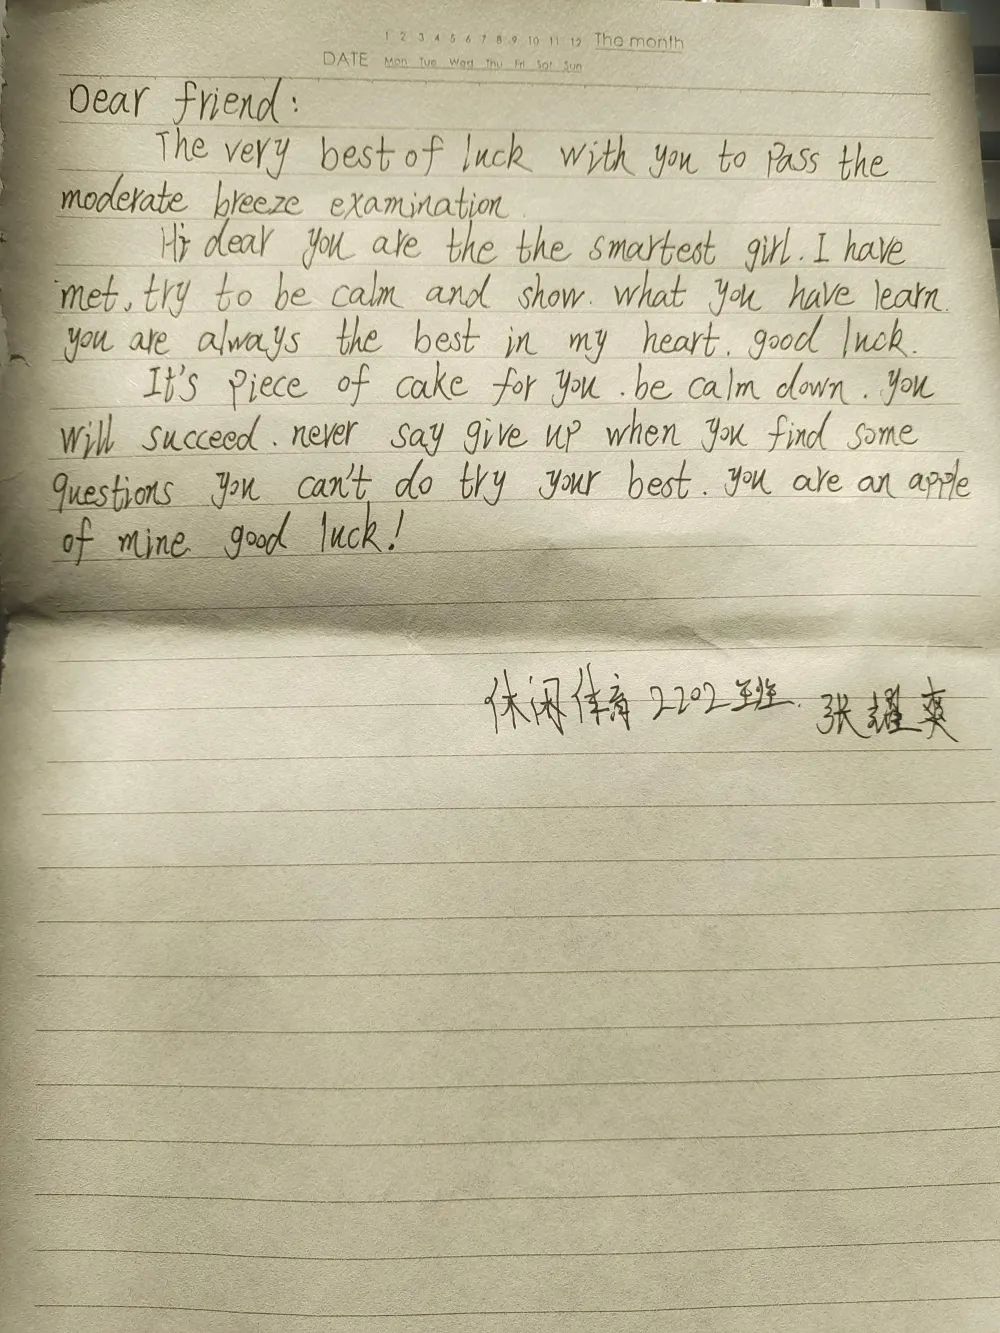 1 2 3 4 5 6 7 8 9 10 11 12 The month
DATE Mon Tue Wed Thu Fri Sat Sun
Dear friend:
The very best of luck with you to pass the
moderate breeze examination.
Hi dear you are the the smartest girl. I have
met, try to be calm and show. what you have learn.
you are always the best in my heart. good luck.
It's piece of cake for you. be calm down. you
will succeed. never say give up when you find some
questions you can't do try your best. you are an apple
of mine good luck!
休闲体育2202班. 张耀爽